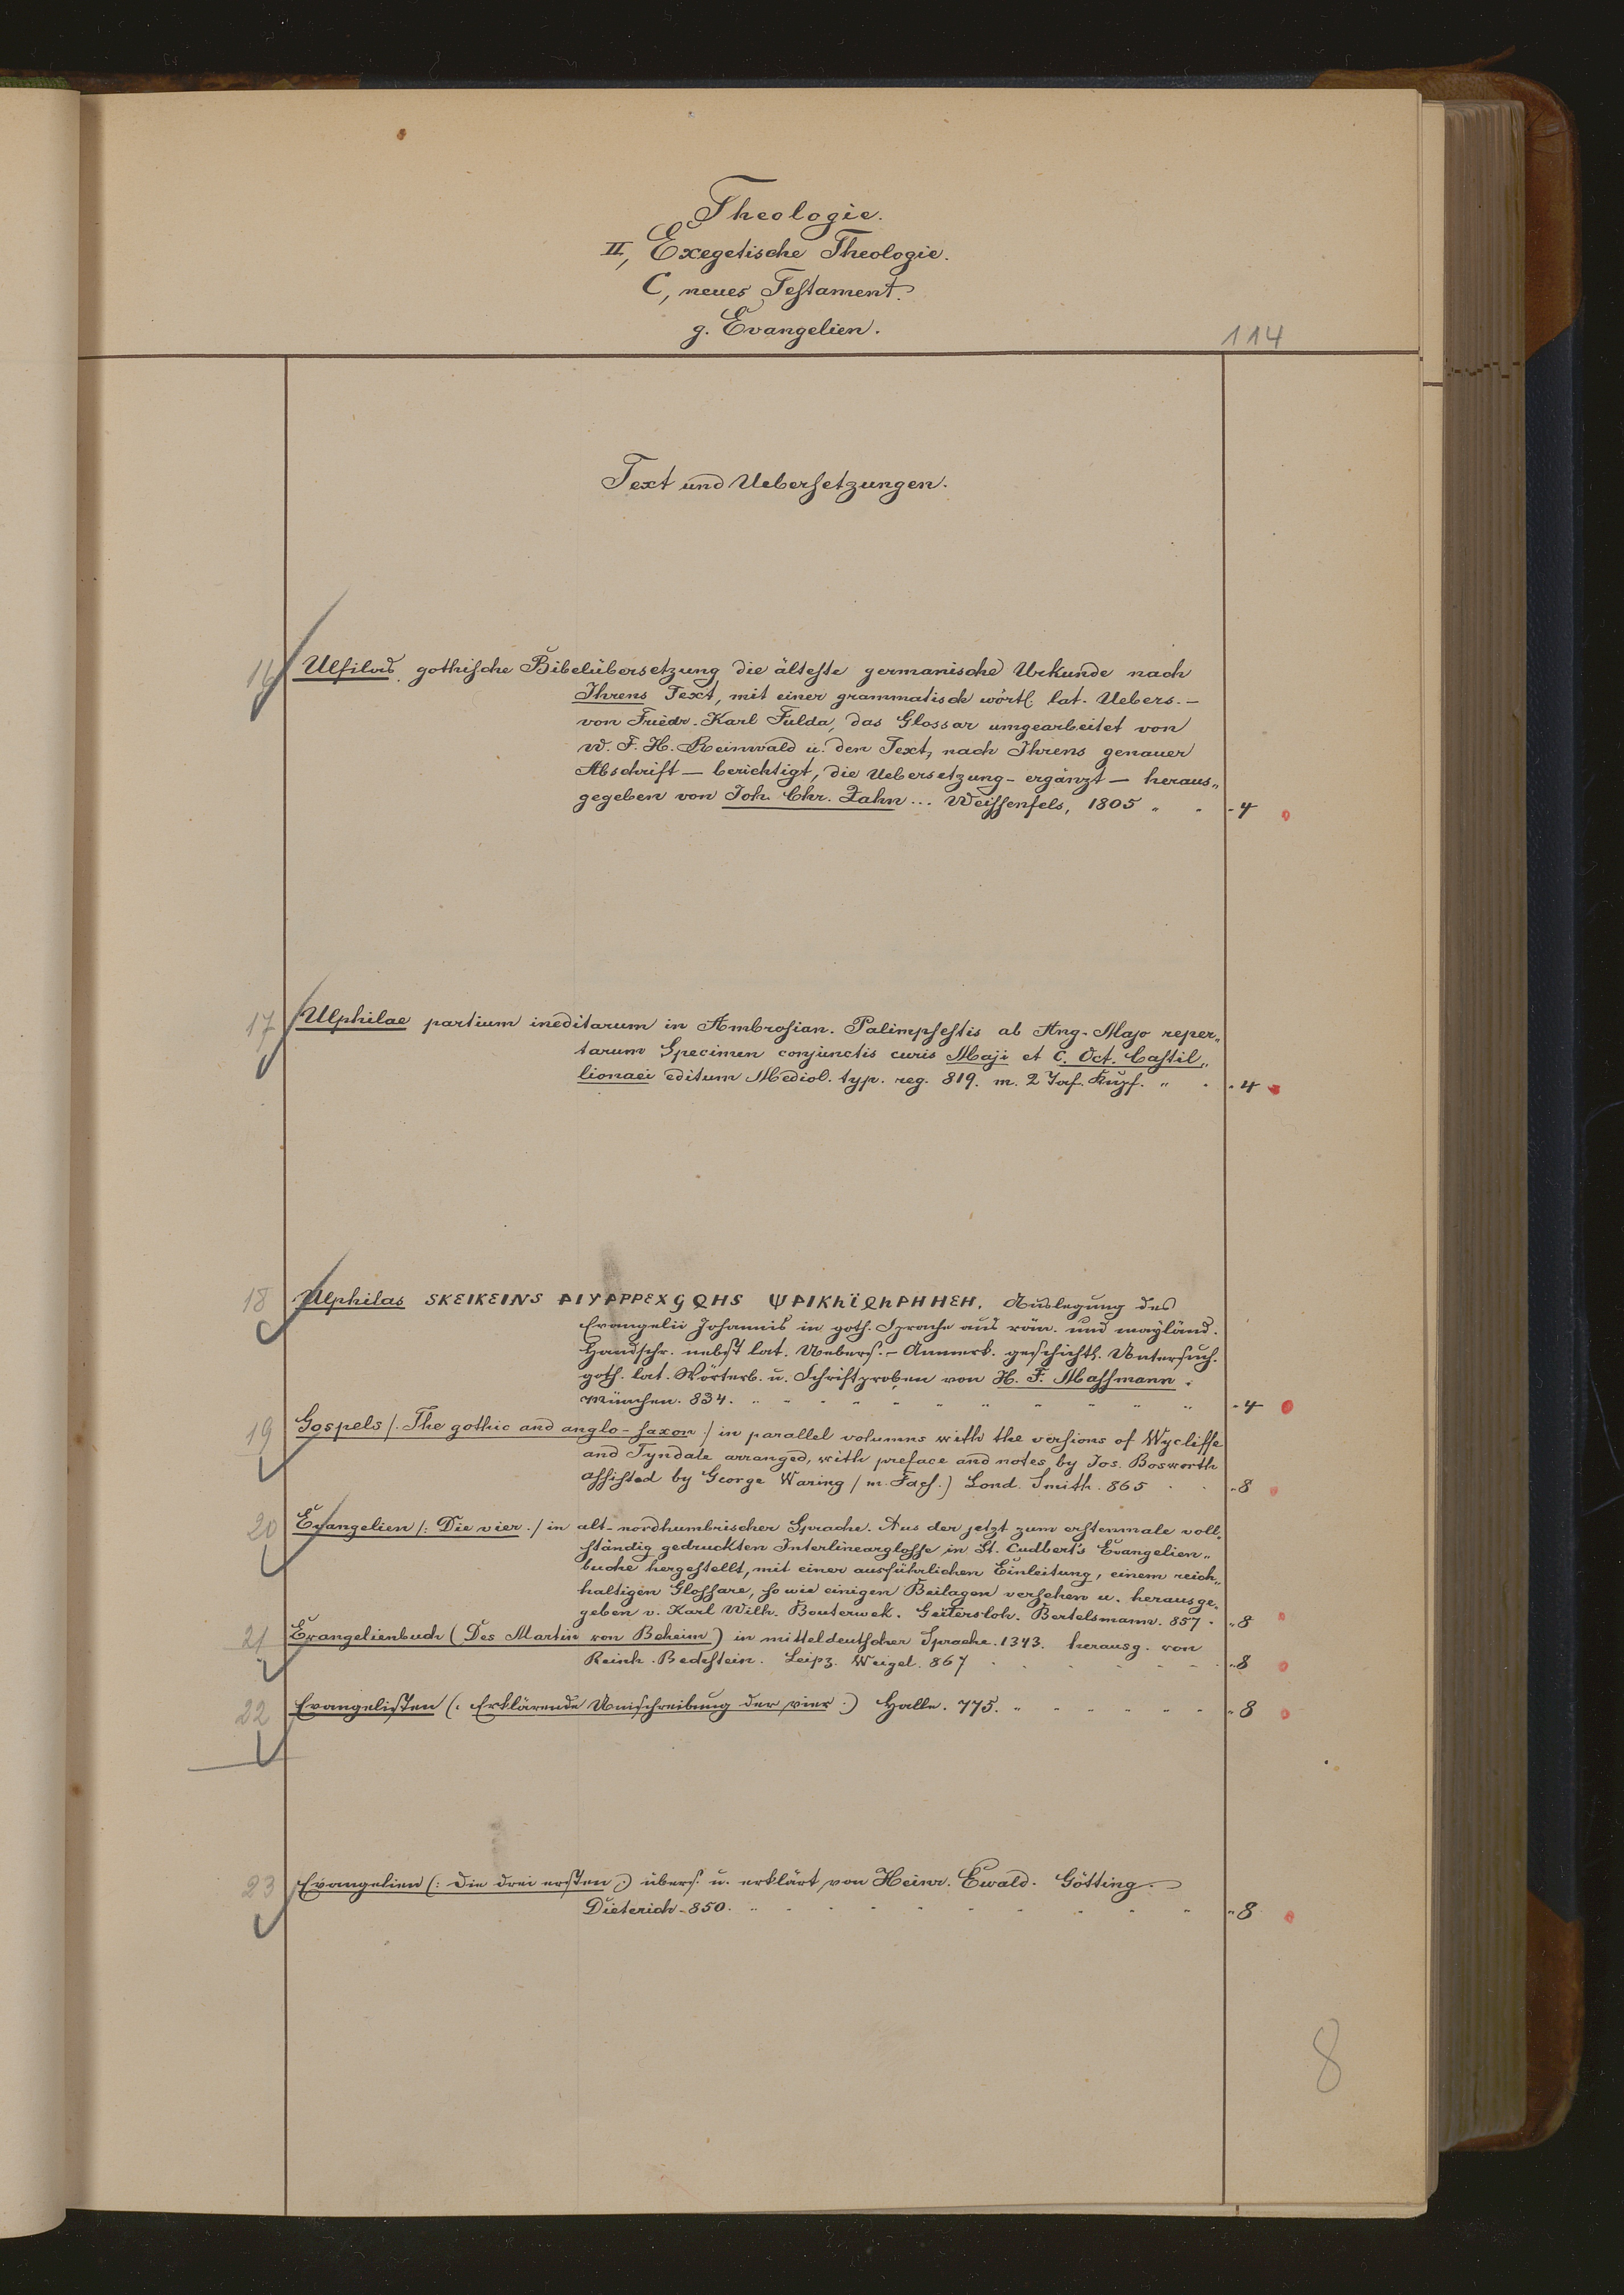 Theologie.
II, Exegetische Theologie.
C, neues Testament.
g. Evangelien.
114
Text und Uebersetzungen.
16 Ulfilas gothische Bibelübersetzung die älteste germanische Urkunde nach
Ihrens Text, mit einer grammatisch wörtl. lat. Uebers. –
von Friedr. Karl Fulda, das Glossar umgearbeitet von
W. F. H. Reinwald u. den Text, nach Ihrens genauer
Abschrift – berichtigt, die Uebersetzung – ergänzt – heraus„
gegeben von Joh. Chr. Zahn ... Weissenfels, 1805 „ - 4
17 Ulphilae partium ineditarum in Ambrosian. Palimpsestis ab Ang. Majo reper„
tarum Specimen conjunctis curis Maji et C. Oct. Castil„
lionaei editum Mediol. typ. reg. 819. m. 2 Taf. Kupf. „ - 4
18 Ulphilas SKEIKEINS Auslegung des
Evangelii Johannis in goth. Sprache aus röm. und mayländ.
Handschr. nebst lat. Uebers. – Anmerk. geschichtl. Untersuch.
goth. lat. Wörterb. u. Schriftproben von H. F. Massmann.
München. 834. - 4
19 Gospels /. The gothic and anglo-saxon ./ in parallel volumns with the versions of Wycliffe
and Tyndale arranged, with preface and notes by Jos. Bosworth
assisted by George Waring / m. Facs.) Lond. Smith. 865 „ 8
20 Evangelien /: Die vier ./ in alt-nordhumbrischer Sprache. Aus der jetzt zum erstenmale voll„
ständig gedruckten Interlinearglosse in St. Cudbert's Evangelien„
buche hergestellt, mit einer ausführlichen Einleitung, einem reich„
haltigen Glossare, so wie einigen Beilagen versehen u. herausge„
geben v. Karl Wilh. Bouterwek. Gütersloh. Bertelsmann. 857. „ 8
21 Evangelienbuch (Des Martin von Beheim) in mitteldeutscher Sprache. 1343. herausg. von
Reinh. Bechstein. Leipz. Weigel. 867 „ 8
22 Evangelisten (: Erklärende Umschreibung der vier :) Halle. 775. „ 8
23 Evangelien (: Die drei ersten :) übers. u. erklärt von Heinr. Ewald. Götting.
Dieterich. 850. „ 8
8